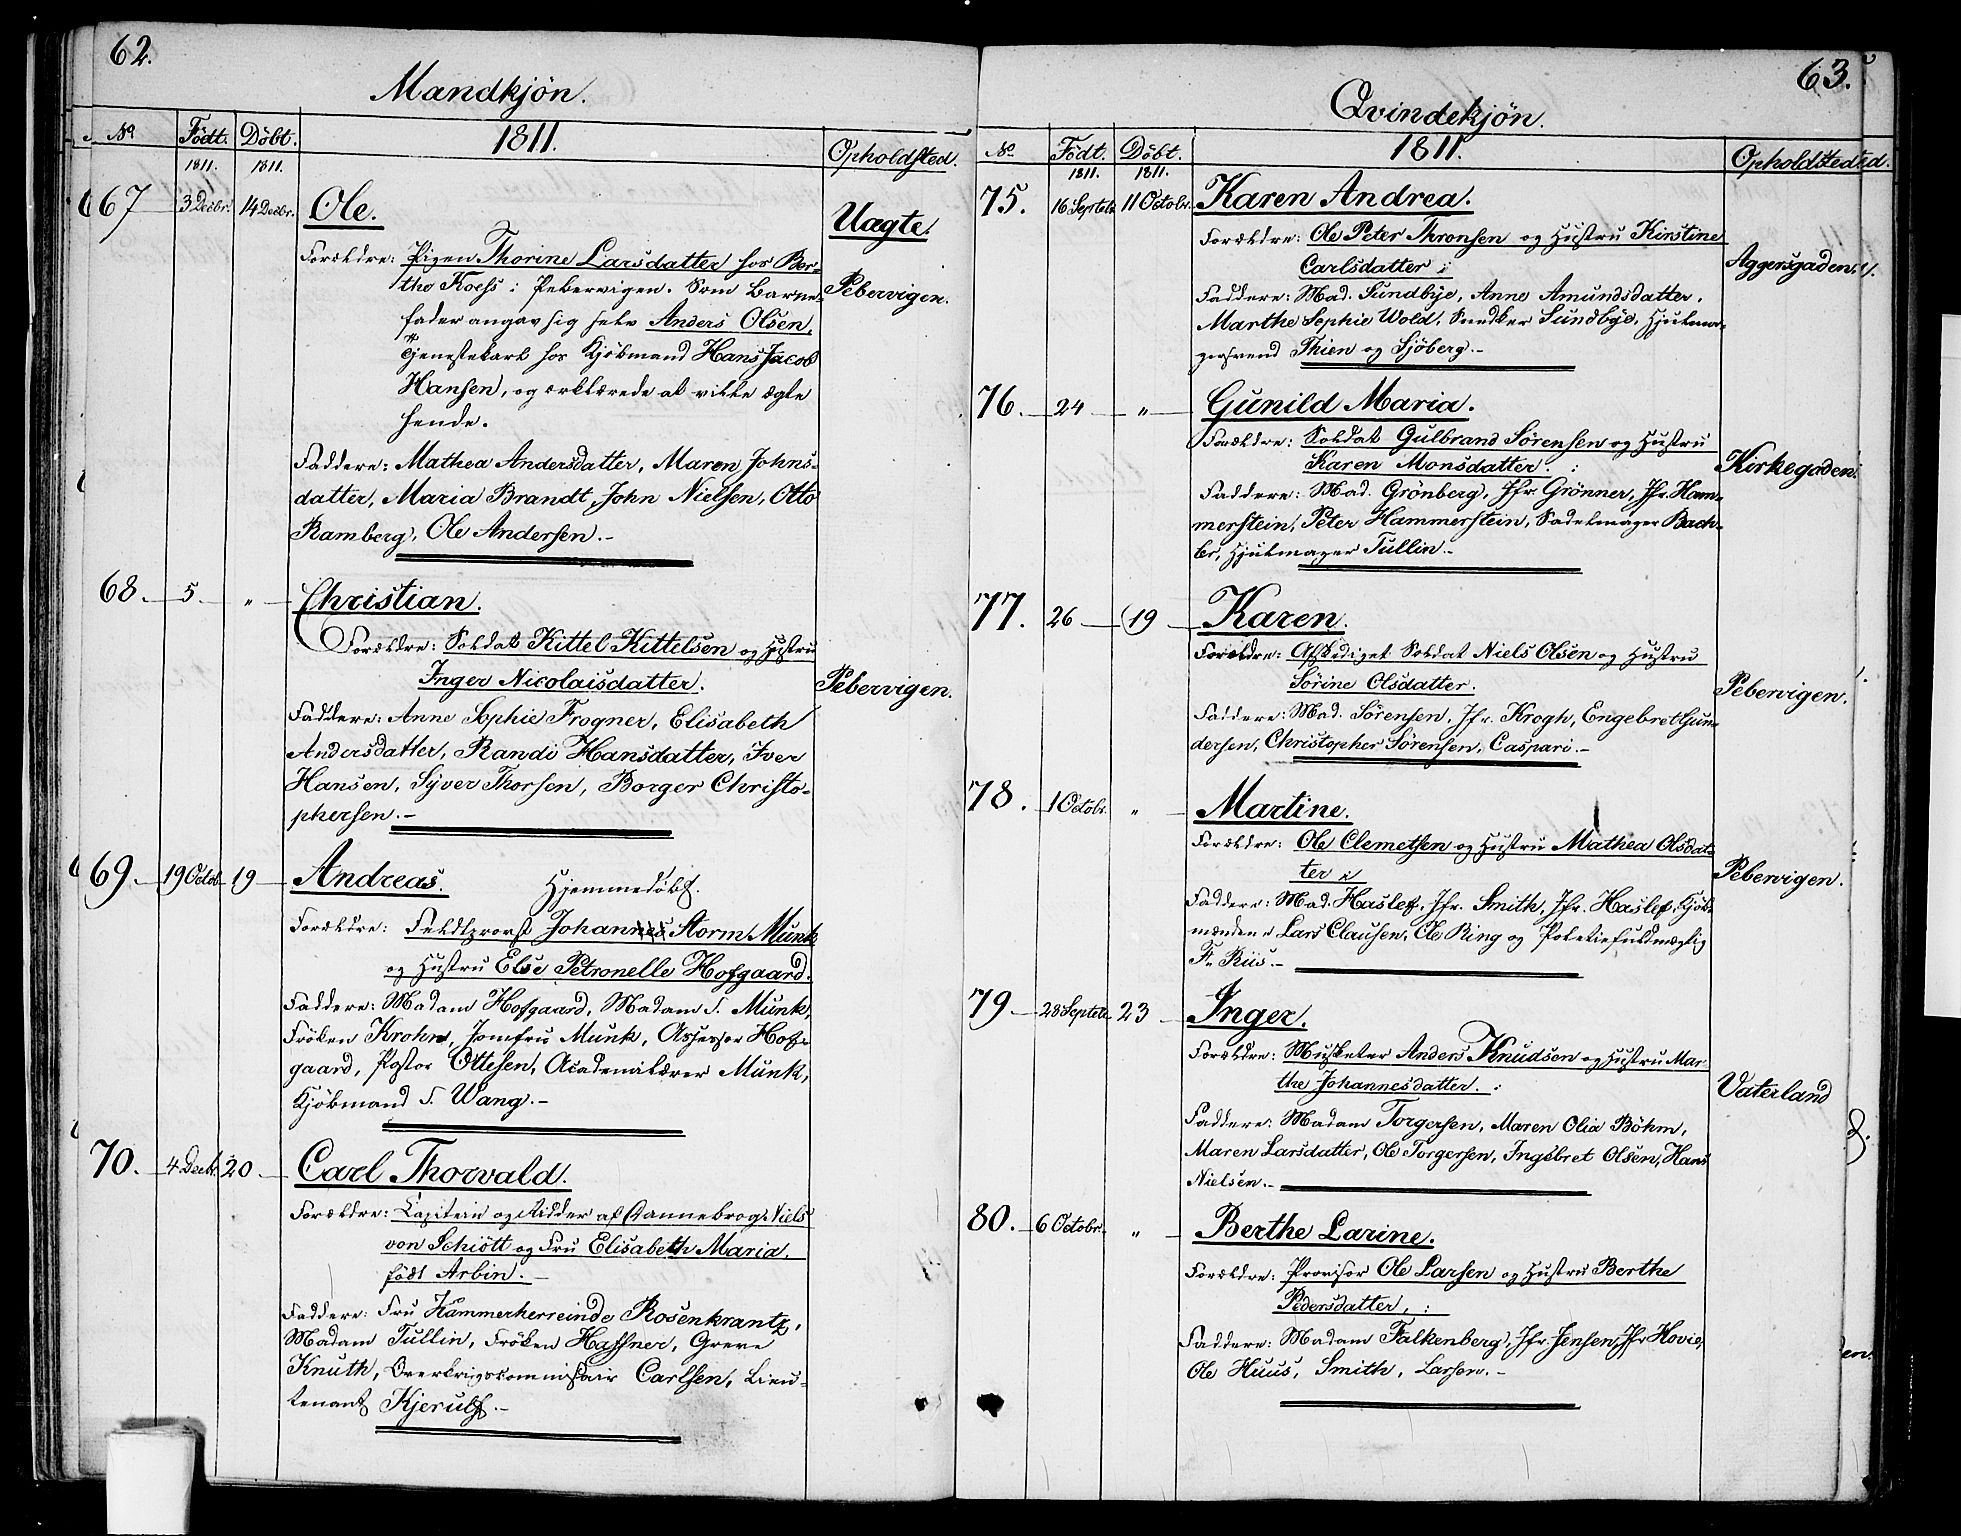 62.
Mandkjön.
No Födt. Döbt. 1811. Opholdsted.
1811. 1811.
67 3 Decbr. 14 Decbr. Ole. Uægte.
Forældre: Pigen Thorine Larsdatter hos Ber-
the Koefs i Pebervigen. Som Barne- Pebervigen.
fader angav sig selv Anders Olsen,
tjenestekarl hos Kjöbmand Hans Jacob
Hansen, og erklærede at ville ægte
hende.
Faddere: Mathea Andersdatter, Maren Johns-
datter, Maria Brandt, John Nielsen, Otto
Ramberg, Ole Andersen.-
68. 5 „ Christian.
Forældre: Soldat Kittel Kittelsen og Hustru
Inger Nicolaisdatter. Pebervigen.
Faddere: Anne Sophie Frogner, Elisabeth
Andersdatter, Randi Hansdatter, Iver
Hansen, Syver Thorsen, Borger Christo-
phersen.-
69. 19 Octob 19 Andreas. Hjemmedöbt.
Forældre: Feldtprovst Johannes Storm Munk
og Hustru Else Petronelle Hofgaard.
Faddere: Madam Hofgaard, Madam S. Munk,
Fröken Krohn, Jomfru Munk, Assessor Hof-
gaard, Pastor Ottesen, Academilærer Munk,
Kjöbmand S. Wang.-
70. 4 Decbr. 20 Carl Thorvald.
Forældre: Capitein og Ridder af Dannebrog Niels
von Schiött og Fru Elisabeth Maria,
födt Arbin.-
Faddere: Fru Kammerherreinde Rosenkrantz,
Madam Tullin, Fröken Haffner, Greve
Knuth, Overkrigscommissair Carlsen, Lieu-
tenant Kjerulf.-
63.
Qvindekjön.
No Födt. Döbt. 1811. Opholdsted.
1811. 1811.
75. 16 Septebr 11 Octobr. Karen Andrea.
Forældre: Ole Peter Thronsen og Hustru Kirstine
Carlsdatter : Aggersgaden.
Faddere: Mad. Sundbye, Anne Amundsdatter,
Marthe Sophie Wold, Snedker Sundbye, Hjulma-
gersvend Thien og Sjöberg.-
76. 24 „ Gunild Maria.
Forældre: Soldat Gulbrand Sörensen og Hustru
Karen Monsdatter. : Kirkegaden.
Faddere: Mad. Grönberg, Jfr. Grönner, Jfr. Ham-
merstein, Peter Hammerstein, Sadelmager Bach-
ler, Hjulmager Tullin.-
77. 26 19 Karen.
Forældre: Afskediget Soldat Niels Olsen og Hustru
Sörine Olsdatter. Pebervigen.
Faddere: Mad. Sörensen, Jfr. Krogh, Engebret Gun-
dersen, Christopher Sörensen, Caspari.-
78. 1 Octobr. „ Martine.
Forældre: Ole Clemetsen og Hustru Mathea Olsdat-
ter : Pebervigen.
Faddere: Mad. Haslef, Jfr. Smith, Jfr. Haslef, Kjöb-
mændene Lars Clausen, Ole Ring og Politiefuldmægtig
Fr. Riis.-
79 28 Septebr 23 Inger.
Forældre: Musketer Anders Knudsen og Hustru Mar-
the Johannesdatter. : Vaterland
Faddere: Madam Torgersen, Maren Olia Böhm,
Maren Larsdatter, Ole Torgersen, Ingebret Olsen, Hans
Nielsen.-
80. 6 Octobr. „ Berthe Larine.
Forældre: Provisor Ole Larsen og Hustru Berthe
Pedersdatter, :
Faddere: Madam Falkenberg, Jfr. Jensen, Jfr Hovie,
Ole Huus, Smith, Larsen.-